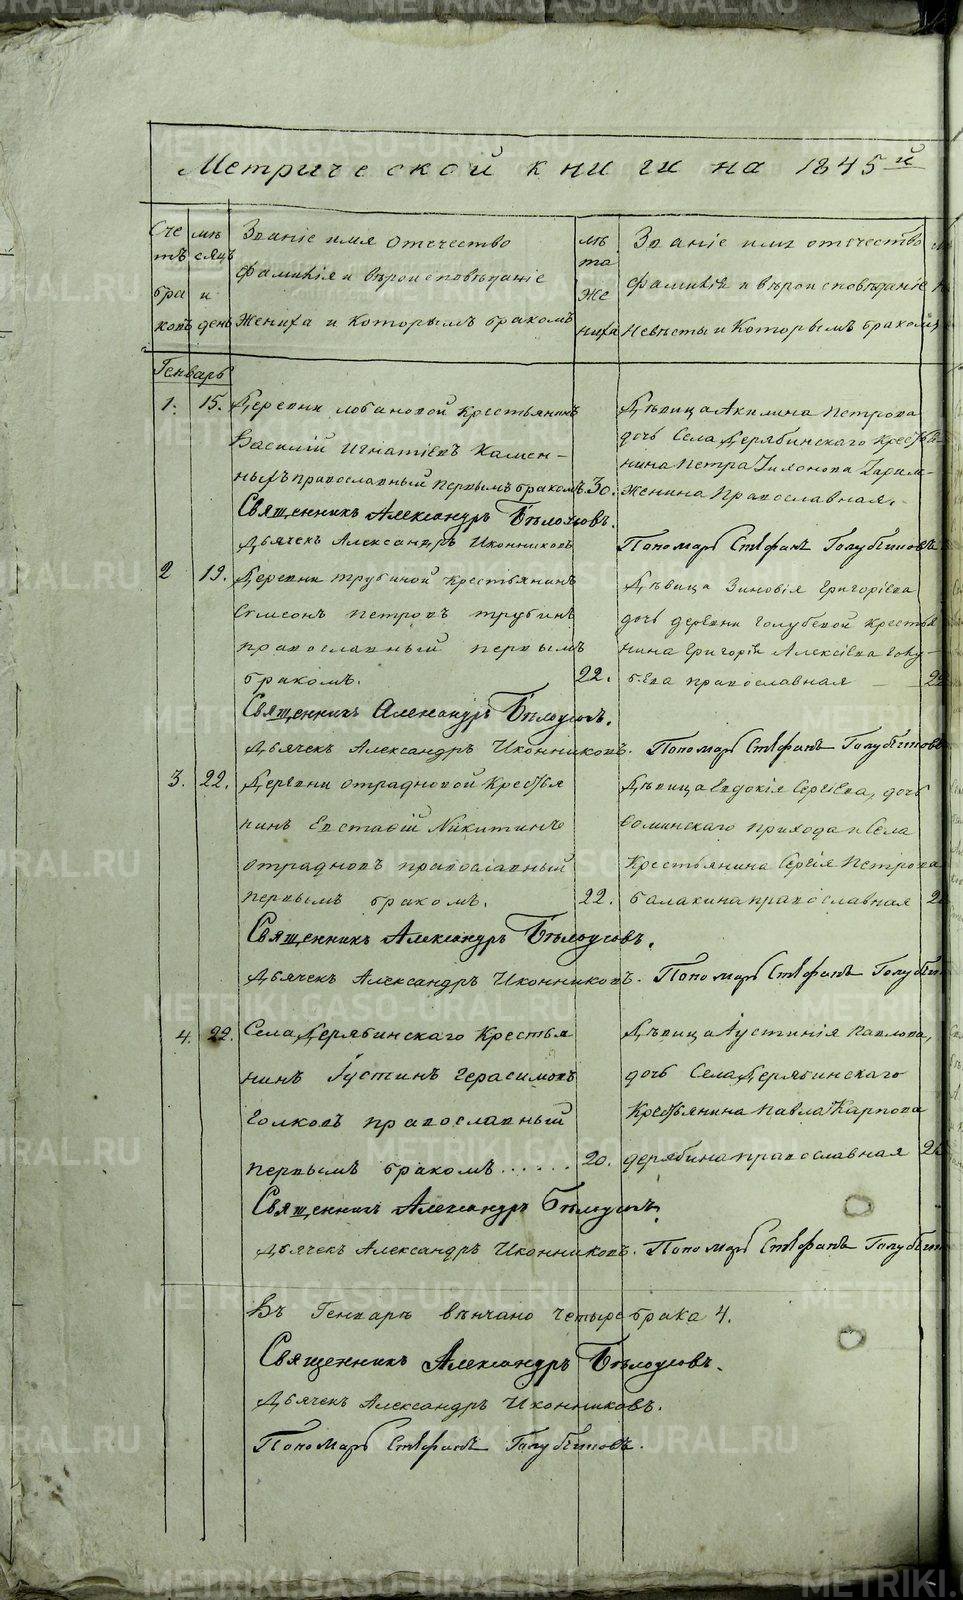 Метрической книги на 1845й
Счетъ браковъ
мѣсяцъ и день
Званіе имя отечество
фамилія и вѣроисповѣданіе
Жениха и Которымъ бракомъ
лѣта жениха
Званіе имя отечество
фамилія и вѣроисповѣданіе
Невѣсты и Которымъ бракомъ
Генварь
1. 15. Деревни Лобановой Крестьянинъ
Василій Игнатіевъ Камен-
ныхъ православный первымъ бракомъ. 30.
Дѣвица Акилина Петрова
дочь Села Дерябинскаго Кресть
нина Петра
женина Православная.
Священникъ Александръ Бѣлоусовъ.
Дьячекъ Александръ Иконниковъ
Пономарь Стефанъ Голубчиковъ
2 19. Деревни Трубиной крестьянинъ
Симеонъ Петровъ Трубинъ
православный первымъ
бракомъ. 22.
Дѣвица Зиновія Григоріева
дочь деревни Голубевой крестья
нина Григорія Алексіева Голу-
бева православная
Священникъ Александръ Бѣлоусовъ.
Дьячекъ Александръ Иконниковъ. Пономарь Стефанъ
3. 22. Деревни Отрадновой Крестья
нинъ Евстафій Никитинъ
Отрадновъ православный
первымъ бракомъ. 22.
Дѣвица Евдокія Сергіева, дочь
Фоминскаго прихода и Села
Крестьянина Сергія Петрова
Балакина православная
Священникъ Александръ Бѣлоусовъ.
Дьячекъ Александръ Иконниковъ. Пономарь Стефанъ
4. 22. Села Дерябинскаго Крестья
нинъ Іустинъ Герасимовъ
Голковъ православный
первымъ бракомъ...... 20.
Дѣвица Іустинія Павлова,
дочь Села Дерябинскаго
Крестьянина Павла Карпова
Дерябина православная
Священникъ Александръ Бѣлоусовъ.
Дьячекъ Александръ Иконниковъ. Пономарь Стефанъ
Въ Генварѣ вѣнчано четыре брака 4.
Священникъ Александръ Бѣлоусовъ.
Дьячекъ Александръ Иконниковъ.
Пономарь Стефанъ Голубчиковъ.
METRIKI.GASO-URAL.RU